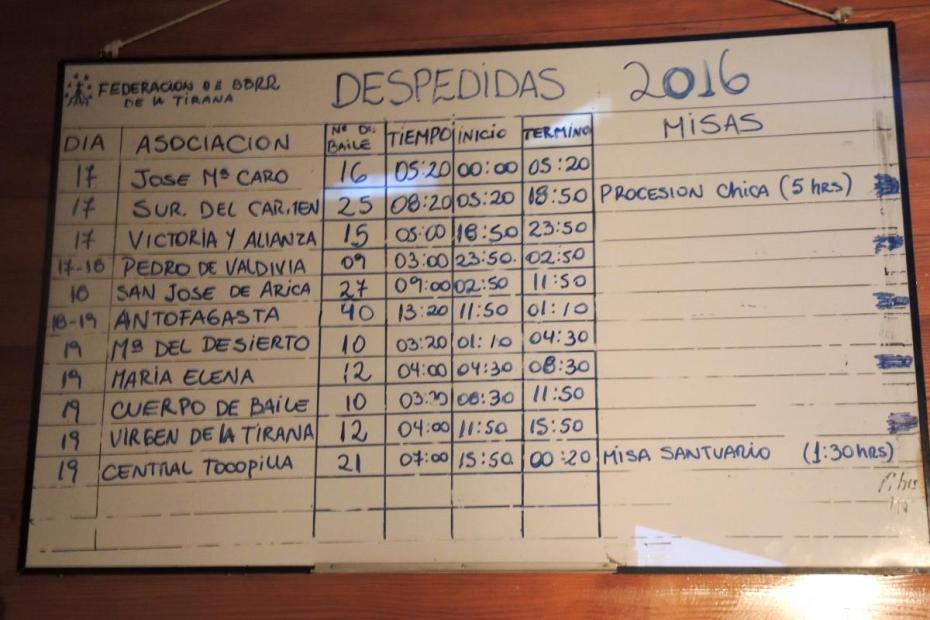 FEDERACION DE BBRR
DE LA TIRANA
DESPEDIDAS 2016
DIA ASOCIACION Nº DE BAILE TIEMPO INICIO TERMINO MISAS
17 JOSE Mª CARO 16 05:20 00:00 05:20
17 SUR. DEL CARMEN 25 08:20 05:20 18:50 PROCESION CHICA (5 hrs)
17 VICTORIA Y ALIANZA 15 05:00 18:50 23:50
17-18 PEDRO DE VALDIVIA 09 03:00 23:50. 02:50
18 SAN JOSE DE ARICA 27 09:00 02:50 11:50
18-19 ANTOFAGASTA 40 13:20 11:50 01:10
19 Mª DEL DESIERTO 10 03:20 01:10 04:30
19 MARIA ELENA 12 04:00 04:30 08:30
19 CUERPO DE BAILE 10 03:20 08:30 11:50
19 VIRGEN DE LA TIRANA 12 04:00 11:50 15:50
19 CENTRAL TOCOPILLA 21 07:00 15:50. 00:20 MISA SANTUARIO (1:30 HRS)